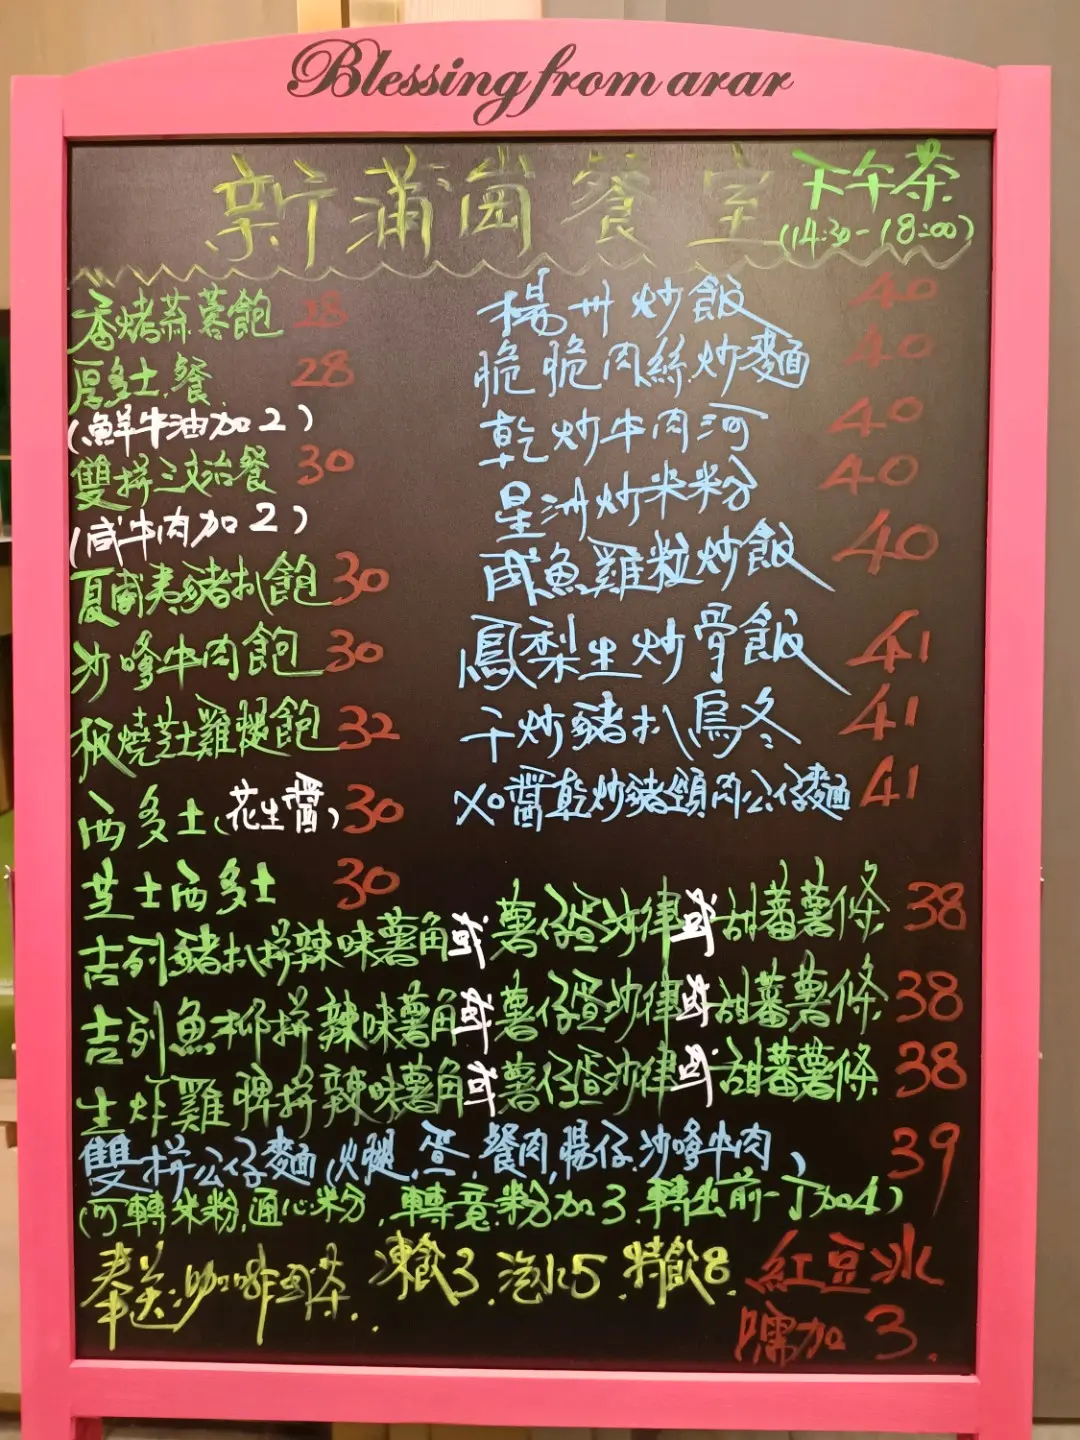 Blessing from arar
新蒲崗餐室 下午茶
(14:30-18:00)
香烤蒜蓉飽 28
厚多士餐 28
(鮮牛油加2)
雙拼三文治餐 30
(咸牛肉加2)
夏威夷豬扒飽 30
沙嗲牛肉飽 30
板燒芝士雞腿飽 32
西多士(花生醬) 30
芝士西多士 30
楊州炒飯 40
脆脆肉絲炒麵 40
乾炒牛肉河 40
星洲炒米粉 40
咸魚雞粒炒飯 40
鳳梨生炒骨飯 41
干炒豬扒烏冬 41
XO醬乾炒豬頸肉公仔麵 41
吉列豬扒拼辣味薯角或薯仔蛋沙律或甜蕃薯條 38
吉列魚柳拼辣味薯角或薯仔蛋沙律或甜蕃薯條 38
生炸雞脾拼辣味薯角或薯仔蛋沙律或甜蕃薯條 38
雙拼公仔麵(火腿.蛋.餐肉.腸仔.沙嗲牛肉) 39
(可轉米粉.通心粉.轉意粉加3.轉出前一丁加4)
奉送:咖啡或茶. 凍食3.汽水5.特飲8. 紅豆冰
加3.